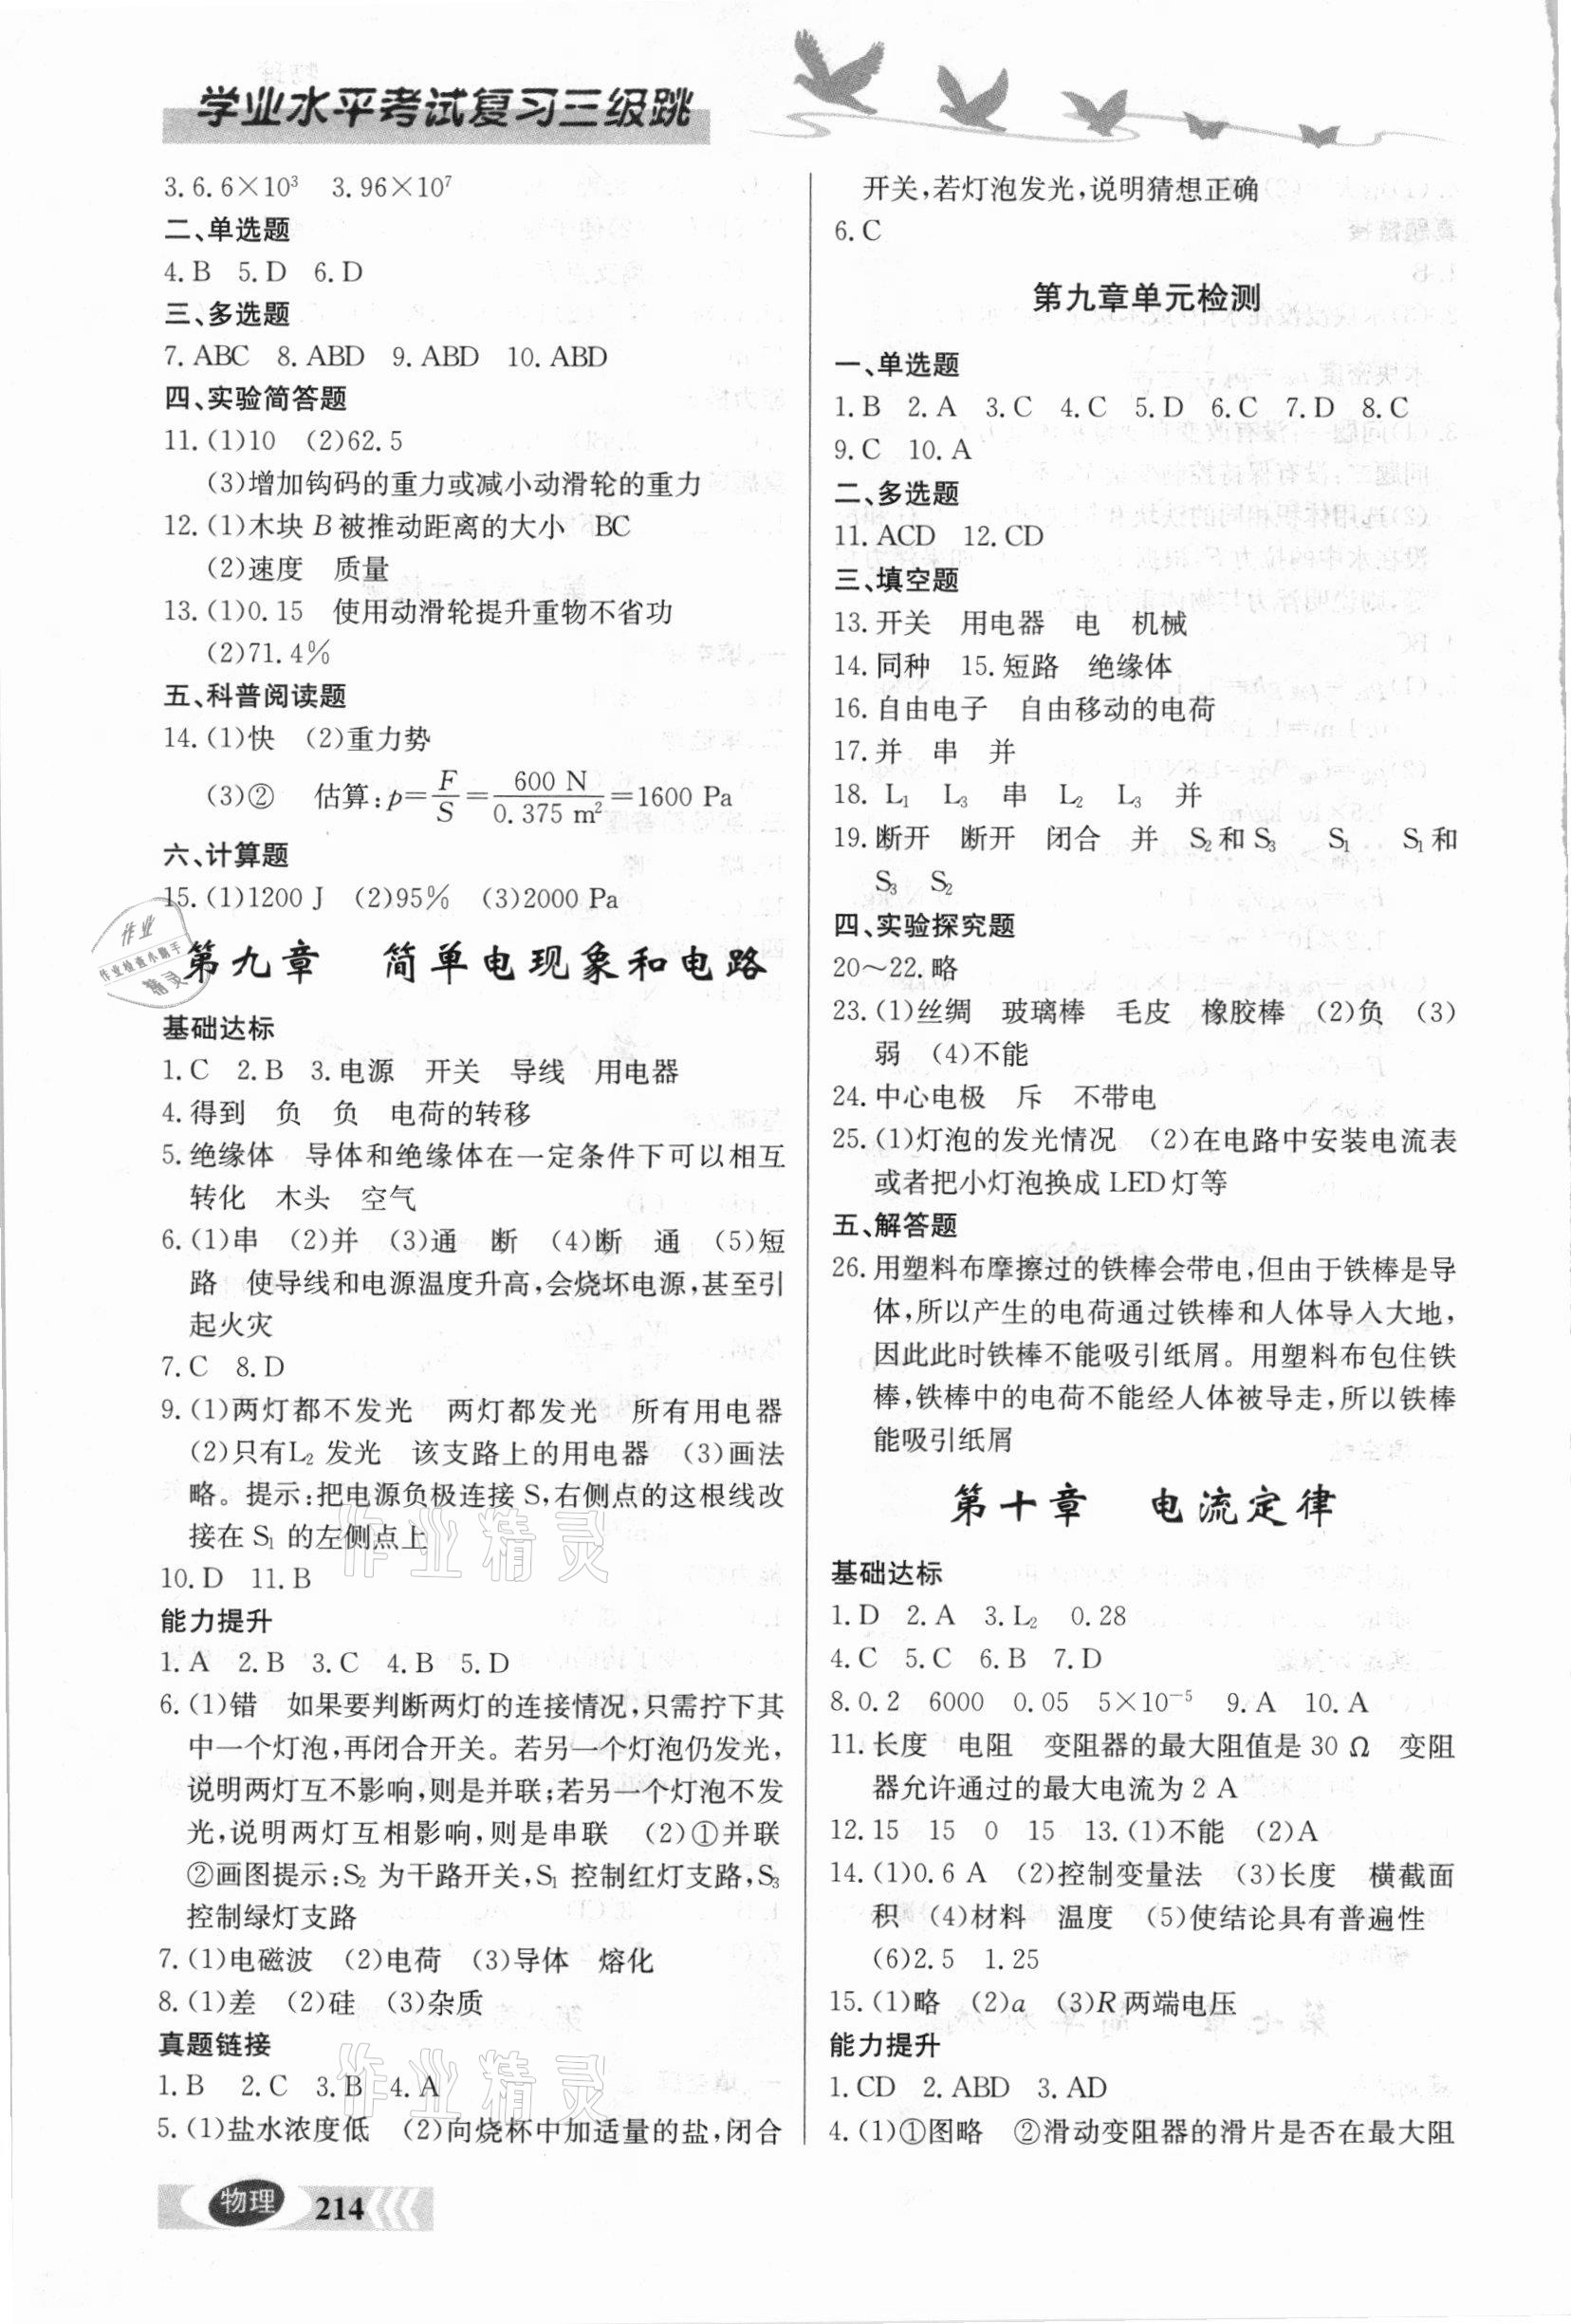 学业水平考试复习三级跳
3. 6.6×10³ 3.96×10⁷
二、单选题
4. B 5. D 6. D
三、多选题
7. ABC 8. ABD 9. ABD 10. ABD
四、实验简答题
11. (1)10 (2)62.5
(3)增加钩码的重力或减小动滑轮的重力
12. (1)木块B被推动距离的大小 BC
(2)速度 质量
13. (1)0.15 使用动滑轮提升重物不省功
(2)71.4%
五、科普阅读题
14. (1)快 (2)重力势
(3)② 估算:p=F/S=600 N/0.375 m²=1600 Pa
六、计算题
15. (1)1200 J (2)95% (3)2000 Pa
第九章 简单电现象和电路
基础达标
1. C 2. B 3. 电源 开关 导线 用电器
4. 得到 负 负 电荷的转移
5. 绝缘体 导体和绝缘体在一定条件下可以相互
转化 木头 空气
6. (1)串 (2)并 (3)通 断 (4)断 通 (5)短
路 使导线和电源温度升高,会烧坏电源,甚至引
起火灾
7. C 8. D
9. (1)两灯都不发光 两灯都发光 所有用电器
(2)只有L₂ 发光 该支路上的用电器 (3)画法
略。提示:把电源负极连接 S,右侧点的这根线改
接在 S₁ 的左侧点上
10. D 11. B
能力提升
1. A 2. B 3. C 4. B 5. D
6. (1)错 如果要判断两灯的连接情况,只需拧下其
中一个灯泡,再闭合开关。若另一个灯泡仍发光,
说明两灯互不影响,则是并联;若另一个灯泡不发
光,说明两灯互相影响,则是串联 (2)①并联
②画图提示:S₂ 为干路开关,S₁ 控制红灯支路,S₃
控制绿灯支路
7. (1)电磁波 (2)电荷 (3)导体 熔化
8. (1)差 (2)硅 (3)杂质
真题链接
1. B 2. C 3. B 4. A
5. (1)盐水浓度低 (2)向烧杯中加适量的盐,闭合
开关,若灯泡发光,说明猜想正确
6. C
第九章单元检测
一、单选题
1. B 2. A 3. C 4. C 5. D 6. C 7. D 8. C
9. C 10. A
二、多选题
11. ACD 12. CD
三、填空题
13. 开关 用电器 电 机械
14. 同种 15. 短路 绝缘体
16. 自由电子 自由移动的电荷
17. 并 串 并
18. L₁ L₃ 串 L₂ L₃ 并
19. 断开 断开 闭合 并 S₂和S₃ S₁ S₁和
S₃ S₂
四、实验探究题
20～22. 略
23. (1)丝绸 玻璃棒 毛皮 橡胶棒 (2)负 (3)
弱 (4)不能
24. 中心电极 斥 不带电
25. (1)灯泡的发光情况 (2)在电路中安装电流表
或者把小灯泡换成 LED 灯等
五、解答题
26. 用塑料布摩擦过的铁棒会带电,但由于铁棒是导
体,所以产生的电荷通过铁棒和人体导入大地,
因此此时铁棒不能吸引纸屑。用塑料布包住铁
棒,铁棒中的电荷不能经人体被导走,所以铁棒
能吸引纸屑
第十章 电流定律
基础达标
1. D 2. A 3. L₂ 0.28
4. C 5. C 6. B 7. D
8. 0.2 6000 0.05 5×10⁻⁵ 9. A 10. A
11. 长度 电阻 变阻器的最大阻值是 30 Ω 变阻
器允许通过的最大电流为 2 A
12. 15 15 0 15 13. (1)不能 (2)A
14. (1)0.6 A (2)控制变量法 (3)长度 横截面
积 (4)材料 温度 (5)使结论具有普遍性
(6)2.5 1.25
15. (1)略 (2)a (3)R 两端电压
能力提升
1. CD 2. ABD 3. AD
4. (1)①图略 ②滑动变阻器的滑片是否在最大阻
物理 214
作业
作业检查小助手
精灵
作业精灵
作业精灵